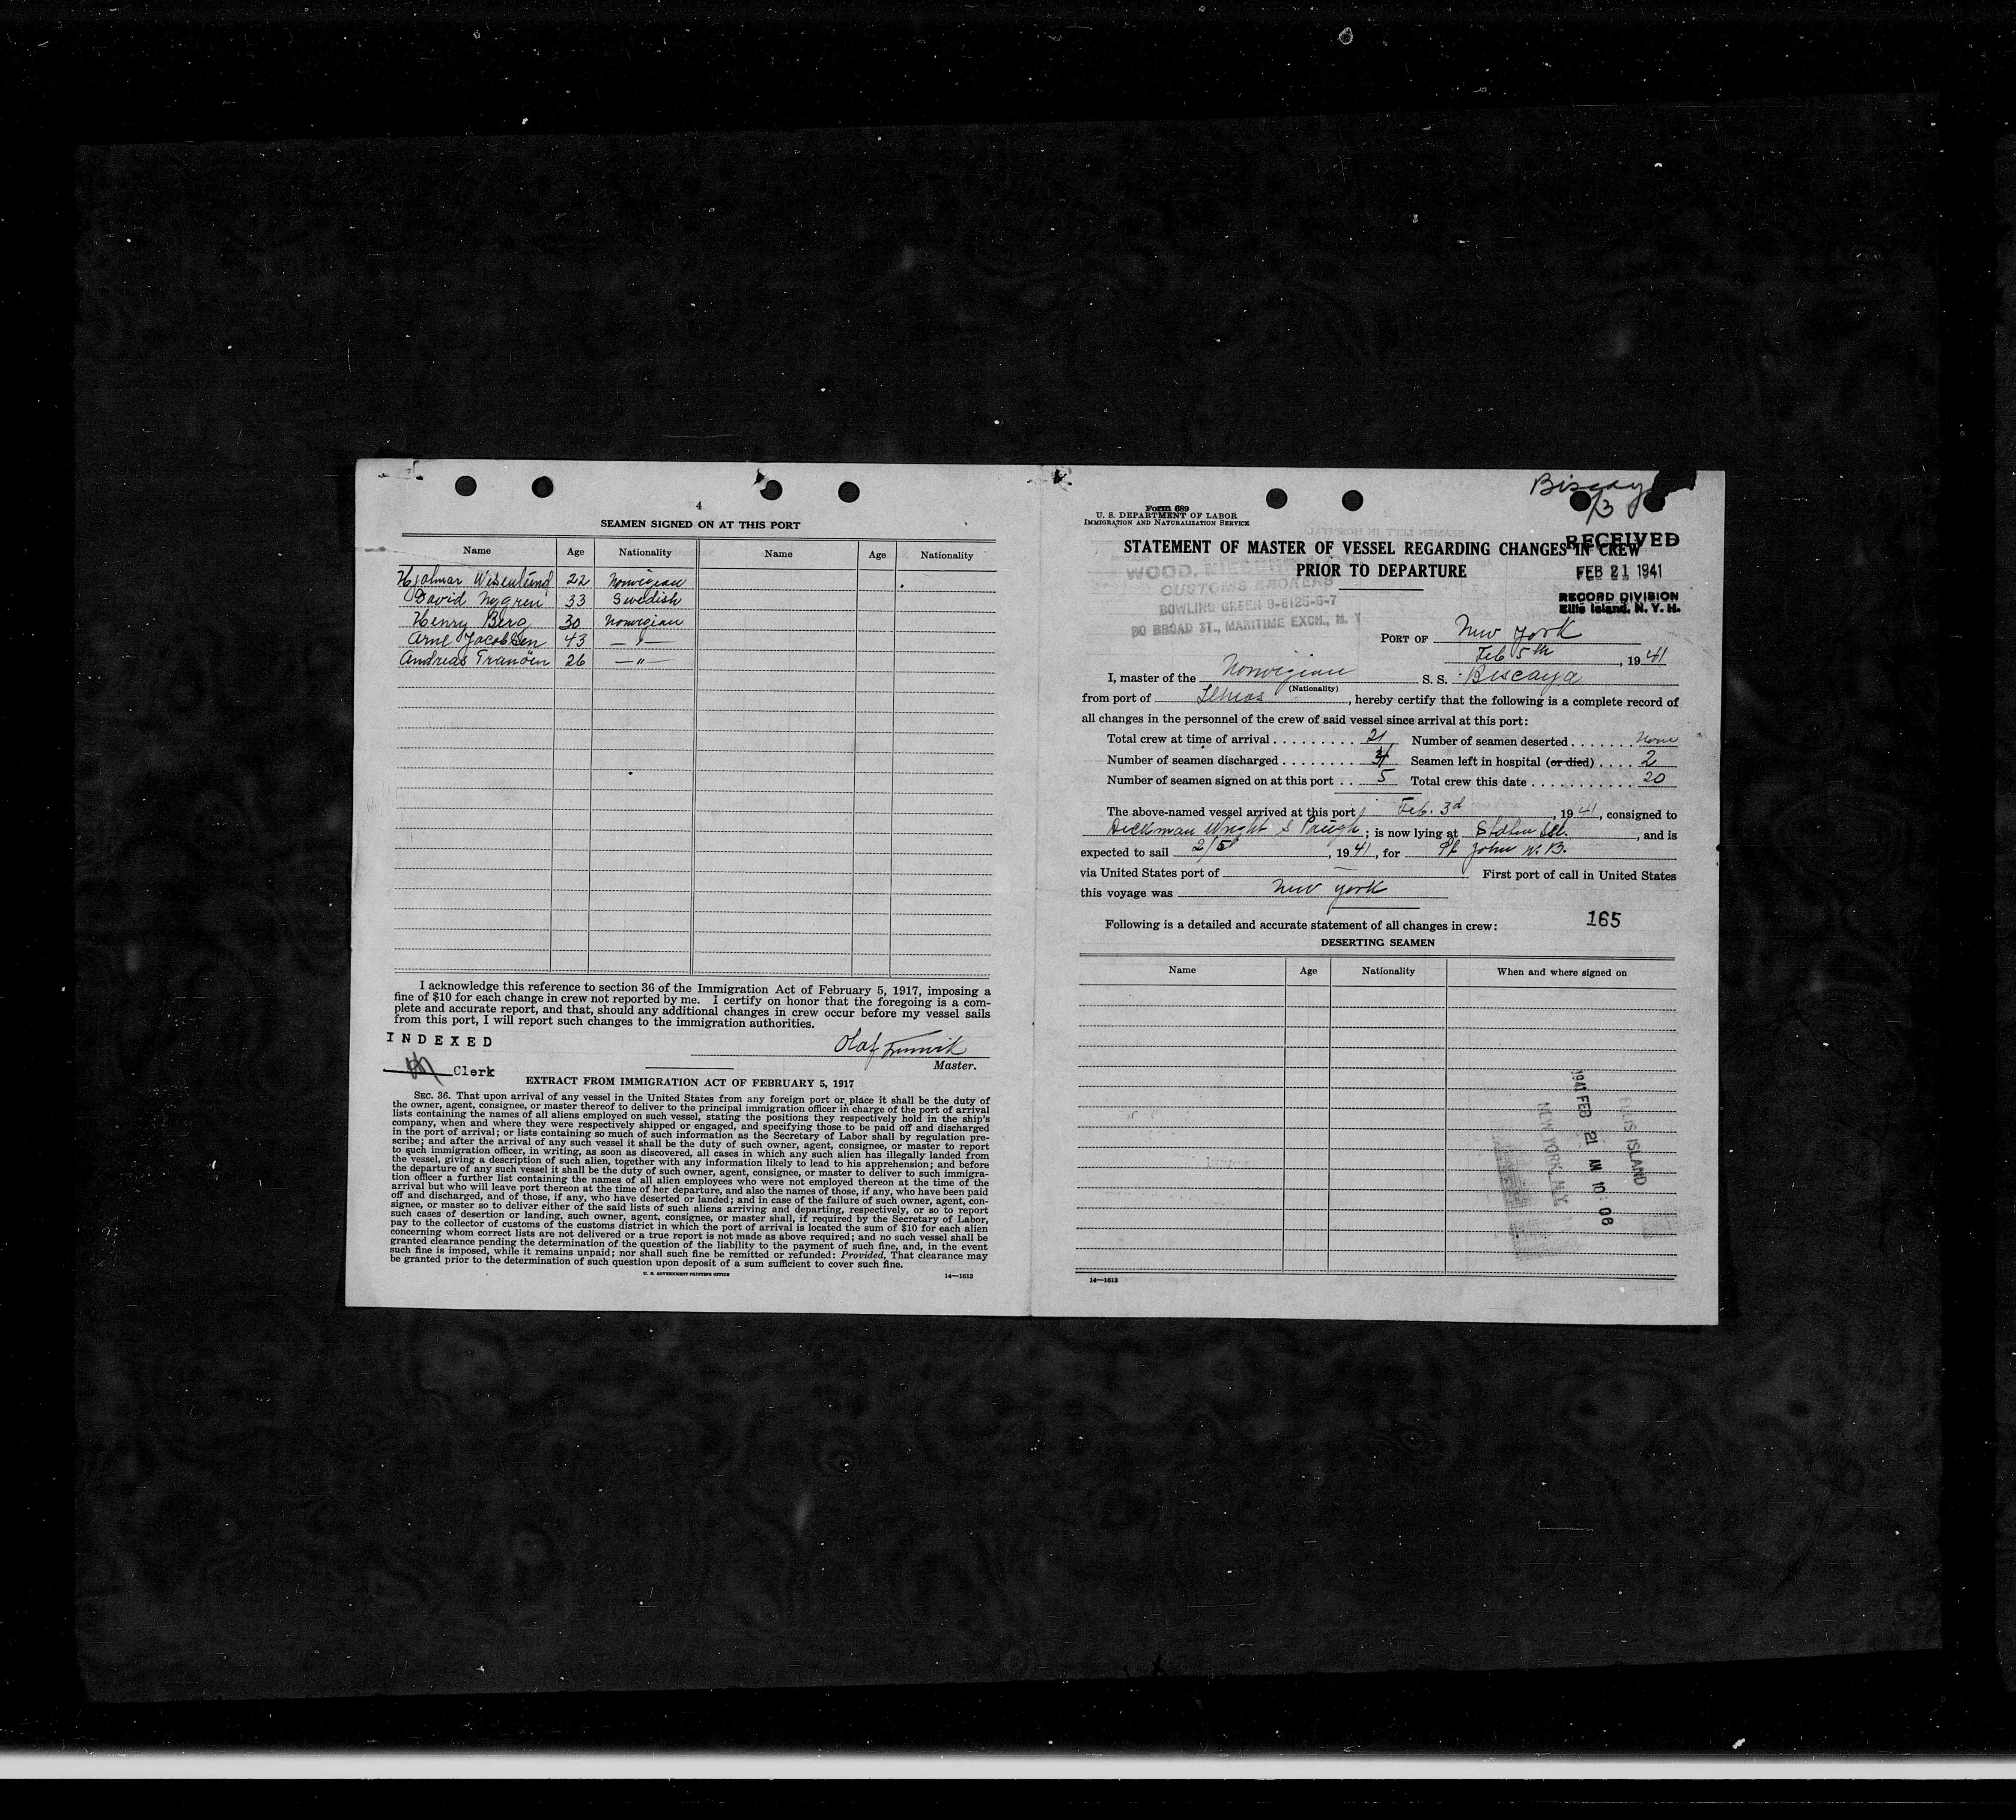 4
SEAMEN SIGNED ON AT THIS PORT
Name Age Nationality Name Age Nationality
Hjalmar Wesenlund 22 Norvigian
David Nygren 33 Swedish
Henry Berg 30 Norvigian
Arne Jacobsen 43 — " —
Andreas Tranöen 26 — " —
I acknowledge this reference to section 36 of the Immigration Act of February 5, 1917, imposing a
fine of $10 for each change in crew not reported by me. I certify on honor that the foregoing is a com-
plete and accurate report, and that, should any additional changes in crew occur before my vessel sails
from this port, I will report such changes to the immigration authorities.
INDEXED
Olaf
Clerk
Master.
EXTRACT FROM IMMIGRATION ACT OF FEBRUARY 5, 1917
SEC. 36. That upon arrival of any vessel in the United States from any foreign port or place it shall be the duty of
the owner, agent, consignee, or master thereof to deliver to the principal immigration officer in charge of the port of arrival
lists containing the names of all aliens employed on such vessel, stating the positions they respectively hold in the ship's
company, when and where they were respectively shipped or engaged, and specifying those to be paid off and discharged
in the port of arrival; or lists containing so much of such information as the Secretary of Labor shall by regulation pre-
scribe; and after the arrival of any such vessel it shall be the duty of such owner, agent, consignee, or master to report
to such immigration officer, in writing, as soon as discovered, all cases in which any such alien has illegally landed from
the vessel, giving a description of such alien, together with any information likely to lead to his apprehension; and before
the departure of any such vessel it shall be the duty of such owner, agent, consignee, or master to deliver to such immigra-
tion officer a further list containing the names of all alien employees who were not employed thereon at the time of the
arrival but who will leave port thereon at the time of her departure, and also the names of those, if any, who have been paid
off and discharged, and of those, if any, who have deserted or landed; and in case of the failure of such owner, agent, con-
signee, or master so to deliver either of the said lists of such aliens arriving and departing, respectively, or so to report
such cases of desertion or landing, such owner, agent, consignee, or master shall, if required by the Secretary of Labor,
pay to the collector of customs of the customs district in which the port of arrival is located the sum of $10 for each alien
concerning whom correct lists are not delivered or a true report is not made as above required; and no such vessel shall be
granted clearance pending the determination of the question of the liability to the payment of such fine, and, in the event
such fine is imposed, while it remains unpaid; nor shall such fine be remitted or refunded: Provided, That clearance may
be granted prior to the determination of such question upon deposit of a sum sufficient to cover such fine.
U. S. GOVERNMENT PRINTING OFFICE 14—1613
Biscay
13
Form 689
U. S. DEPARTMENT OF LABOR
IMMIGRATION AND NATURALIZATION SERVICE
STATEMENT OF MASTER OF VESSEL REGARDING CHANGES IN CREW
PRIOR TO DEPARTURE
RECEIVED
FEB 21 1941
RECORD DIVISION
Ellis Island, N. Y. H.
WOOD,
CUSTOMS BROKERS
BOWLING GREEN 9-6125-6-7
80 BROAD ST., MARITIME EXCH., N. Y
PORT OF New York
Feb 5th, 1941
I, master of the Norvigian S. S. Biscaya
(Nationality)
from port of Ilheos, hereby certify that the following is a complete record of
all changes in the personnel of the crew of said vessel since arrival at this port:
Total crew at time of arrival . . . . . . . . . . 21 Number of seamen deserted . . . . . . . none
Number of seamen discharged . . . . . . . . 4 Seamen left in hospital (or died) . . . . 2
Number of seamen signed on at this port . . 5 Total crew this date . . . . . . . . . . . . 20
The above-named vessel arrived at this port Feb. 3d, 1941, consigned to
Dickman Wright & Pugh; is now lying at Staten Isl., and is
expected to sail 2/5, 1941, for St John N.B.
via United States port of — First port of call in United States
this voyage was New York
Following is a detailed and accurate statement of all changes in crew: 165
DESERTING SEAMEN
Name Age Nationality When and where signed on
1941 FEB 21 AM 10:06
ELLIS ISLAND
NEW YORK, N.Y.
14—1613